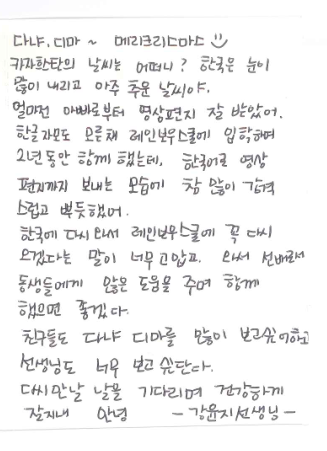 다냐, 디마 ~ 메리크리스마스
카자흐탄의 날씨는 어떠니? 한국은 눈이
많이 내리고 아주 추운 날씨야.
얼마전 아빠로부터 영상편지 잘 받았어.
한글자모도 모른채 레인보우스쿨에 입학하여
2년동안 함께 했는데, 한국어로 영상
편지까지 보내는 모습에 참 많이 감격
스럽고 뿌듯했어.
한국에 다시 와서 레인보우스쿨에 꼭 다시
오겠다는 말이 너무 고맙고. 와서 선배로서
동생들에게 많은 도움을 주며 함께
했으면 좋겠다.
친구들도 다냐 디마를 많이 보고싶어하고
선생님도 너무 보고 싶단다.
다시만날 날을 기다리며 건강하게
잘지내 안녕 - 강윤지선생님 -